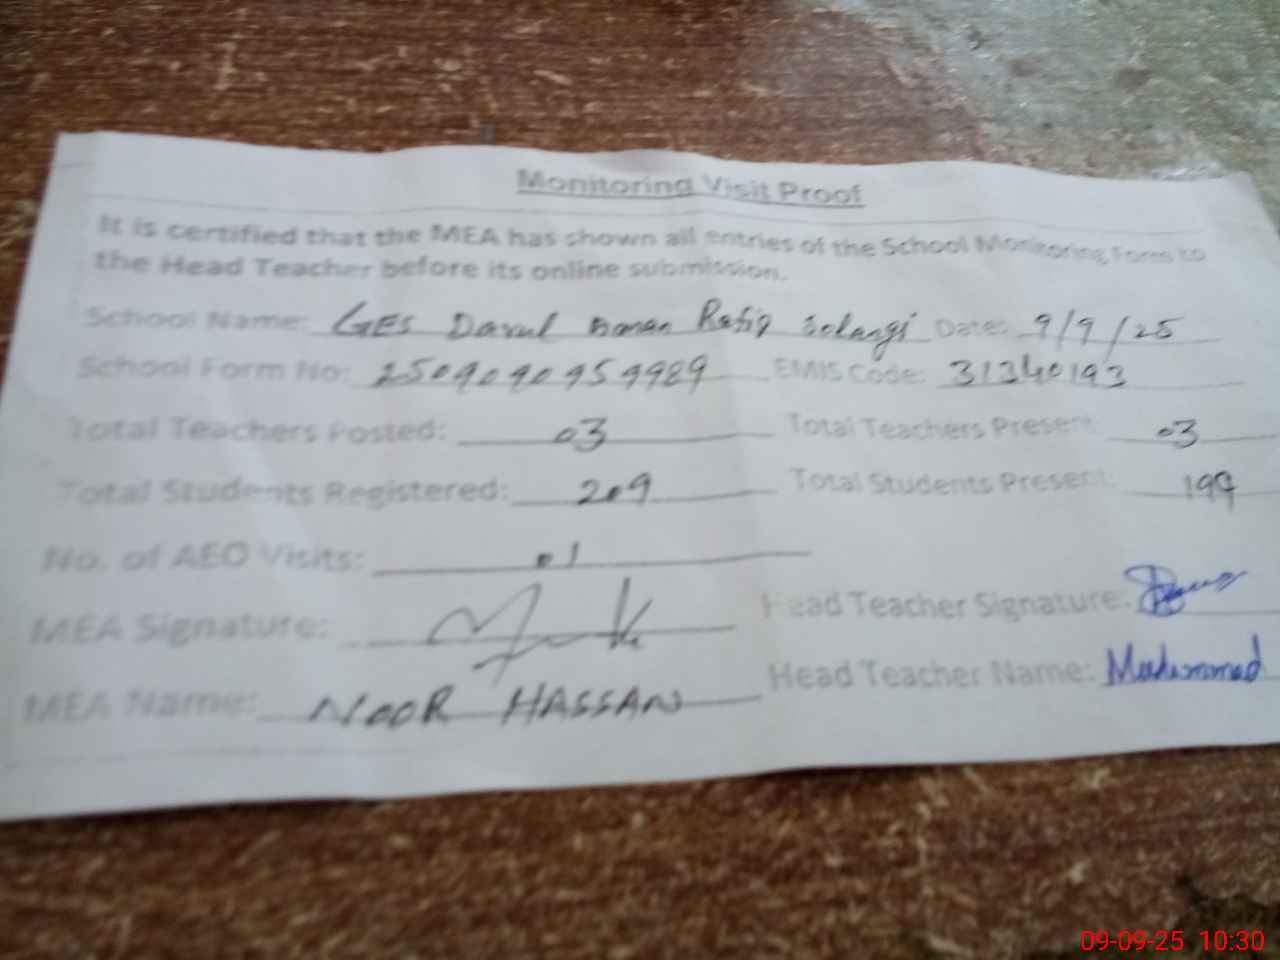 Monitoring Visit Proof
It is certified that the MEA has shown all entries of the School Monitoring Form to
the Head Teacher before its online submission.
School Name: GES Darul Aman Rafiq Solangi Date: 9/9/25
School Form No: 2509090959989 EMIS Code: 31340193
Total Teachers Posted: 03 Total Teachers Present: 03
Total Students Registered: 209 Total Students Present: 199
No. of AEO Visits: 01
MEA Signature: Head Teacher Signature:
MEA Name: NOOR HASSAN Head Teacher Name: Muhammad
09-09-25 10:30